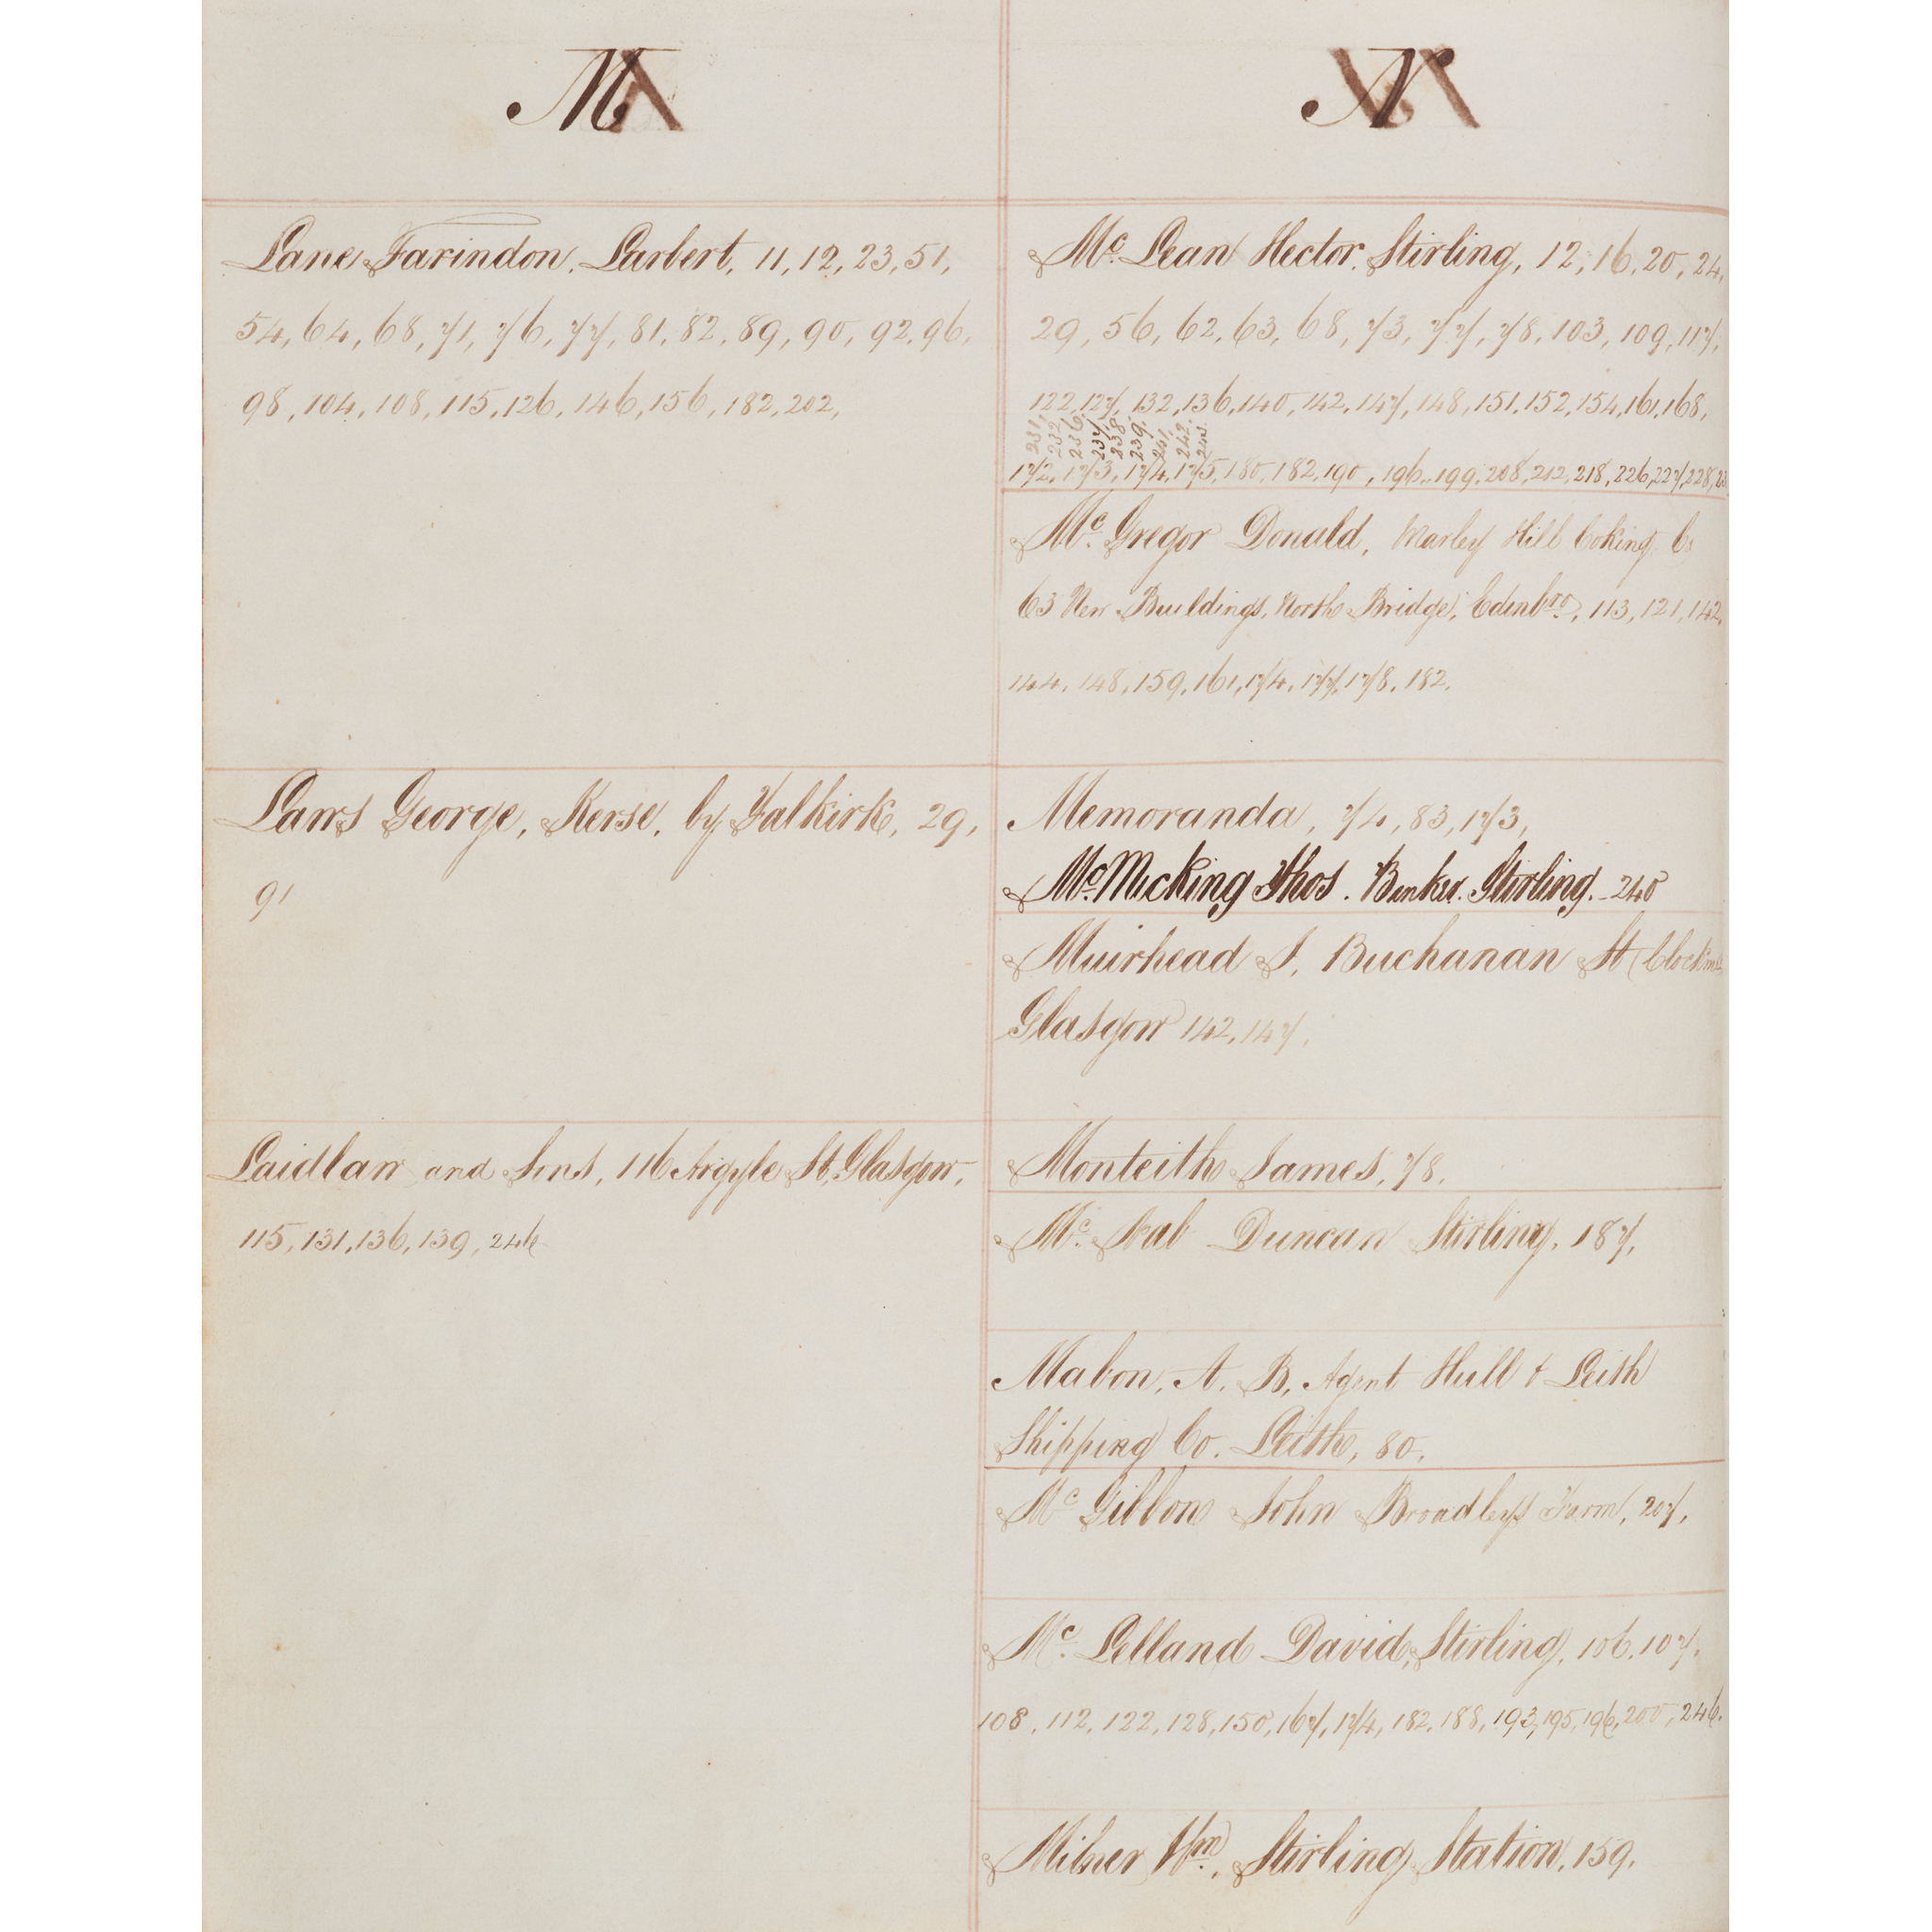 M
Lane Farindon, Larbert, 11, 12, 23, 51,
54, 64, 68, 71, 76, 77, 81, 82, 89, 90, 92, 96,
98, 104, 108, 115, 126, 146, 156, 182, 202,
Laws George, Kerse, by Falkirk, 29,
91
Laidlaw and Sons, 116 Argyle St, Glasgow,
115, 131, 136, 139, 246
N
Mc Lean Hector, Stirling, 12, 16, 20, 24,
29, 56, 62, 63, 68, 73, 77, 78, 103, 109, 117,
122, 127, 132, 136, 140, 142, 147, 148, 151, 152, 154, 161, 168,
231, 232, 236, 237, 238, 239, 241, 242, 243.
172, 173, 174, 175, 180, 182, 190, 196, 199, 208, 212, 218, 226, 227, 228,
Mc Gregor Donald, Marley Hill Coking Co
63 New Buildings, North Bridge, Edinbro, 113, 121, 142,
144, 148, 159, 161, 174, 177, 178, 182.
Memoranda, 74, 83, 173,
McMicking Thos. Banker. Stirling. 240
Muirhead J, Buchanan St (Clockmr
Glasgow 142, 147,
Monteith James, 78.
Mc Nab Duncan Stirling, 187,
Mabon, A. B, Agent Hull & Leith
Shipping Co. Leith, 80.
Mc Gibbon John Broadleys Farm, 207,
Mc Lelland David, Stirling, 106, 107,
108, 112, 122, 128, 150, 167, 174, 182, 188, 193, 195, 196, 200, 246.
Milner Wm, Stirling Station, 159,